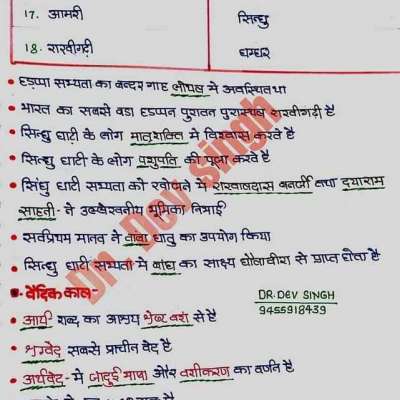 17. आमरी सिन्धु
18. राखीगढ़ी घग्घर
• हड़प्पा सभ्यता का बन्दरगाह लोथल में अवस्थित था
• भारत का सबसे बडा हडप्पन पुरातन पुरास्थल राखीगढ़ी है
• सिन्धु घाटी के लोग मातृशक्ति में विश्वास करते है
• सिन्धु घाटी के लोग पशुपति की पूजा करते है
• सिंधु घाटी सभ्यता को खोजने में राखालदास बनर्जी तथा दयाराम
साहनी- ने उल्लेखनीय भूमिका निभाई
• सर्वप्रथम मानव ने तांबा धातु का उपयोग किया
• सिन्धु घाटी सभ्यता में बांध का साक्ष्य धौलावीरा से प्राप्त होता है
वैदिक काल-
DR. DEV SINGH
9455918439
• आर्य शब्द का आशय श्रेष्ठ वंश से है
• ऋग्वेद सबसे प्राचीन वेद है
• अर्थववेद- में जादुई भाषा और वशीकरण का वर्णन है
Dr. Dev Singh